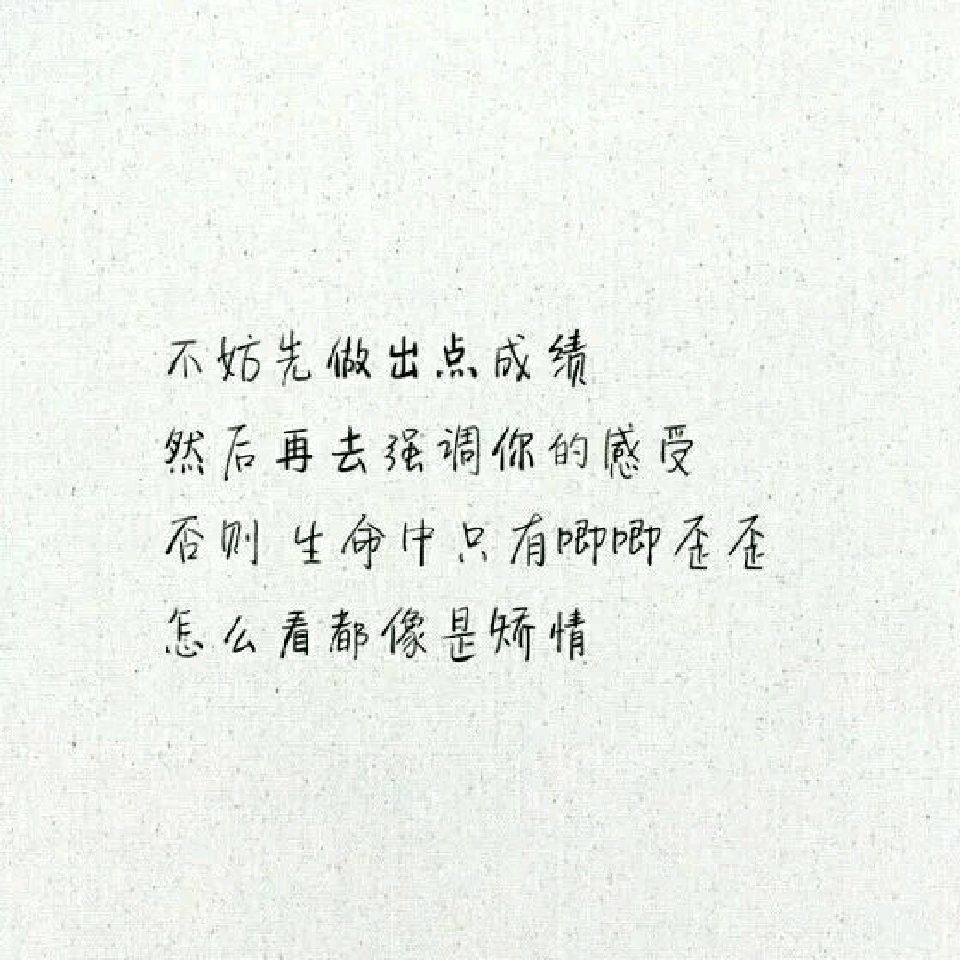 不妨先做出点成绩
然后再去强调你的感受
否则 生命中只有唧唧歪歪
怎么看都像是矫情